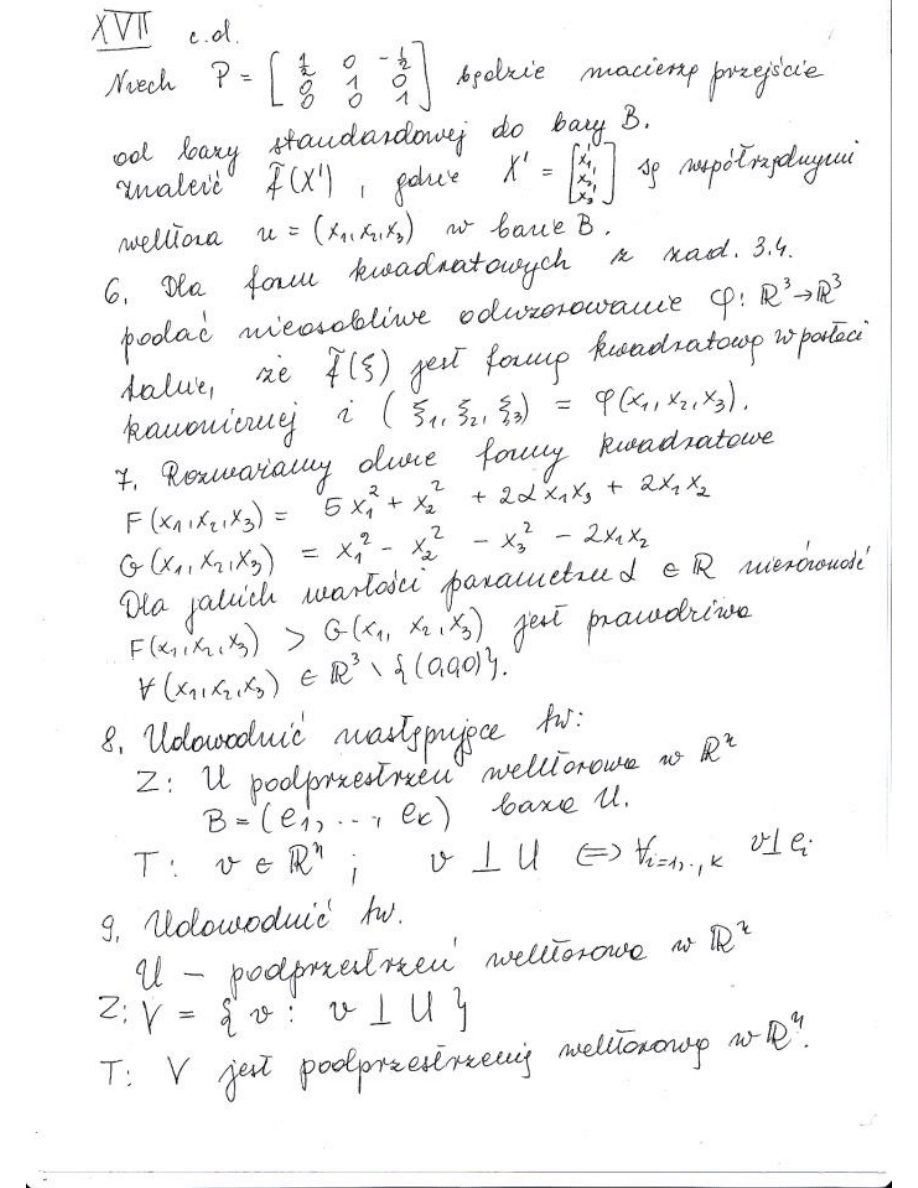 XVII c.d.
Niech P = [ 1/2 0 -1/2 ; 0 1 0 ; 0 0 1 ] będzie macierzą przejścia
od bazy standardowej do bazy B.
Znaleźć f̃(X'), gdzie X' = [ x₁' ; x₂' ; x₃' ] są współrzędnymi
wektora u = (x₁, x₂, x₃) w bazie B.
6. Dla form kwadratowych z zad. 3.4.
podać nieosobliwe odwzorowanie φ: ℝ³→ℝ³
takie, że f̃(ξ) jest formą kwadratową w postaci
kanonicznej i (ξ₁, ξ₂, ξ₃) = φ(x₁, x₂, x₃).
7. Rozważamy dwie formy kwadratowe
F(x₁, x₂, x₃) = 5x₁² + x₂² + 2αx₁x₃ + 2x₁x₂
G(x₁, x₂, x₃) = x₁² - x₂² - x₃² - 2x₁x₂
Dla jakich wartości parametru α ∈ ℝ nierówność
F(x₁, x₂, x₃) > G(x₁, x₂, x₃) jest prawdziwa
∀(x₁, x₂, x₃) ∈ ℝ³ \ {(0,0,0)}.
8. Udowodnić następujące tw:
Z: U podprzestrzeń wektorowa w ℝⁿ
B = (e₁, ..., eₖ) baza U.
T: v ∈ ℝⁿ ; v ⊥ U ⟺ ∀ᵢ₌₁,..,ₖ v ⊥ eᵢ
9. Udowodnić tw.
U – podprzestrzeń wektorowa w ℝⁿ
Z: V = { v : v ⊥ U }
T: V jest podprzestrzenią wektorową w ℝⁿ.